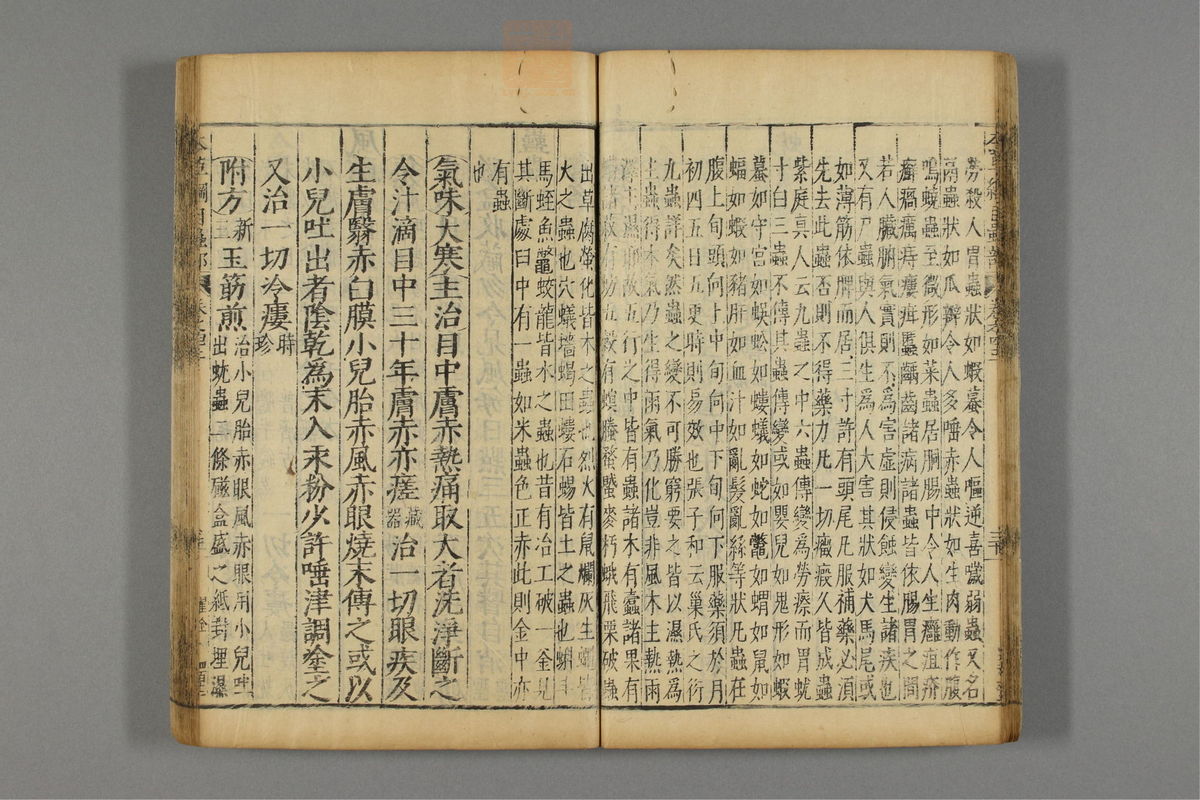 勞殺人胃蟲狀如蝦蟇令人嘔逆喜噦弱蟲又名
膈蟲狀如瓜瓣令人多唾赤蟲狀如生肉動作腹
鳴蟯蟲至微形如菜蟲居胴腸中令人生癰疽疥
癬瘑癘痔瘻疳䘌齲齒諸病諸蟲皆依腸胃之間
若人臟腑氣實則不為害虛則侵蝕變生諸疾也
又有尸蟲與人俱生為人大害其狀如犬馬尾或
如薄筋依脾而居三寸許有頭尾凡服補藥必須
先去此蟲否則不得藥力凡一切癥瘕久皆成蟲
紫庭真人云九蟲之中六蟲傳變為勞瘵而胃蚘
寸白三蟲不傳其蟲傳變或如嬰兒如鬼形如蝦
蟇如守宮如蜈蚣如螻蟻如蛇如鼈如蝟如鼠如
蝠如蝦如豬肝如血汁如亂髮亂絲等狀凡蟲在
腹上旬頭向上中旬向中下旬向下服藥須於月
初四五日五更時則易效也張子和云巢氏之衍
九蟲詳矣然蟲之變不可勝窮要之皆以濕熱為
主蟲得木氣乃生得雨氣乃化豈非風木主熱雨
澤主濕耶故五行之中皆有蟲諸木有蠹諸果有
有五穀有螟螣蝥蟹麥朽蛾飛栗破蟲
出草腐螢化皆木之蟲也烈火有鼠爛灰生蠅皆
火之蟲也穴蟻墻蝎田螻石蜴皆土之蟲也蝌斗
馬蛭魚鼈蛟龍皆水之蟲也昔有冶工破一釜見
其斷處臼中有一蟲如米蟲色正赤此則金中亦
有蟲
也
氣味大寒主治目中膚赤熱痛取大者洗淨斷之
令汁滴目中三十年膚赤亦瘥藏器治一切眼疾及
生膚翳赤白膜小兒胎赤風赤眼燒末傅之或以
小兒吐出者陰乾為末入汞粉少許唾津調塗之
又治一切冷瘻時珍
附方新玉筯煎治小兒胎赤眼風赤眼用小兒吐
出蚘蟲二條磁盒盛之紙封埋濕
本草綱目蟲部